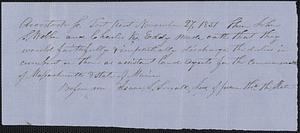 Aroostook ss. Fort Kent November 27, 1851 Then John
S. Webber and Charles K. Eddy made oath that they
would faithfully & impartially discharge the duties in
cumbent on them as assistant Land Agents for the Commonwealth
of Massachusetts & State of Maine
Before me